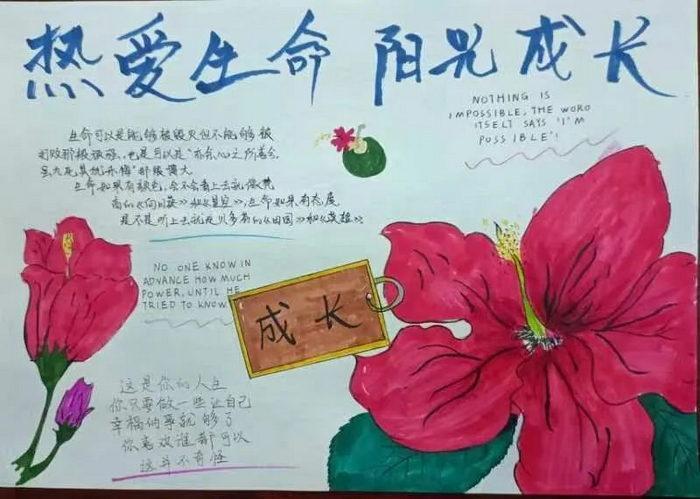 热爱生命 阳光成长
NOTHING IS
IMPOSSIBLE, THE WORD
ITSELF SAYS 'I'M
POSSIBLE'!
生命可以是能够被毁灭但不能够被
打败那般顽强，也是可以是"亦余心之所善兮，
虽九死其犹未悔"那般博大
生命如果有颜色，会不会看上去就像梵
高的《向日葵》和《星空》，生命如果有态度
是不是听上去就是贝多芬的《田园》和《英雄》
NO ONE KNOW IN
ADVANCE HOW MUCH
POWER, UNTIL HE
TRIED TO KNOW
成长
这是你的人生
你只要做一些让自己
幸福的事就够了
你喜欢谁都可以
这并不奇怪